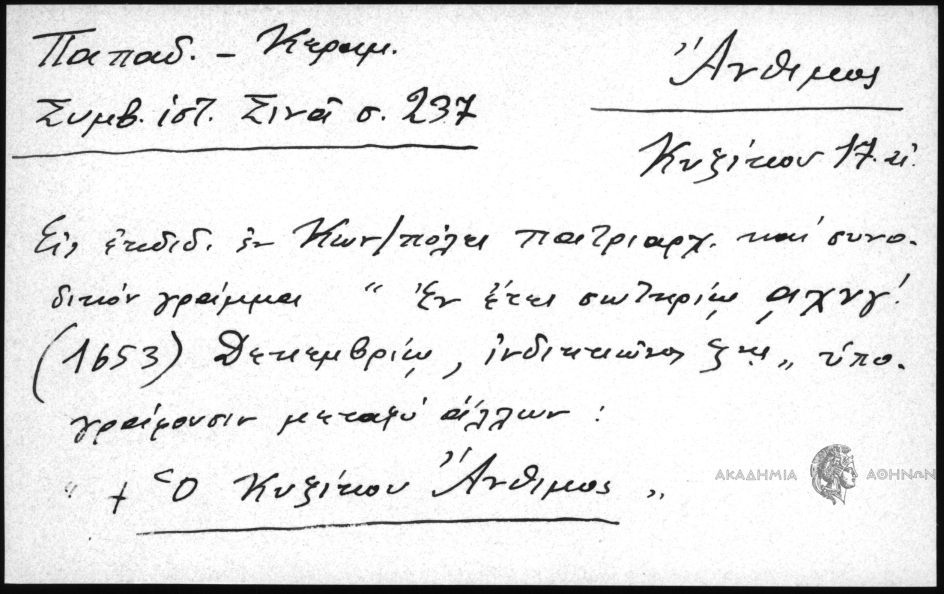 Παπαδ. - Κεραμ.
Συμβ. ἱστ. Σινᾶ σ. 237
Ἄνθιμος
Κυζίκου 17. αἰ.
Εἰς ἐκδιδ. ἐν Κων/πόλει πατριαρχ. καί συνο-
δικόν γράμμα " Ἐν ἔτει σωτηρίῳ ͵αχνγ΄.
(1653) Δεκεμβρίῳ, ἰνδικτιῶνος ζης " ὑπο-
γράφουσιν μεταξύ ἄλλων :
" + Ὁ Κυζίκου Ἄνθιμος "
ΑΚΑΔΗΜΙΑ ΑΘΗΝΩΝ